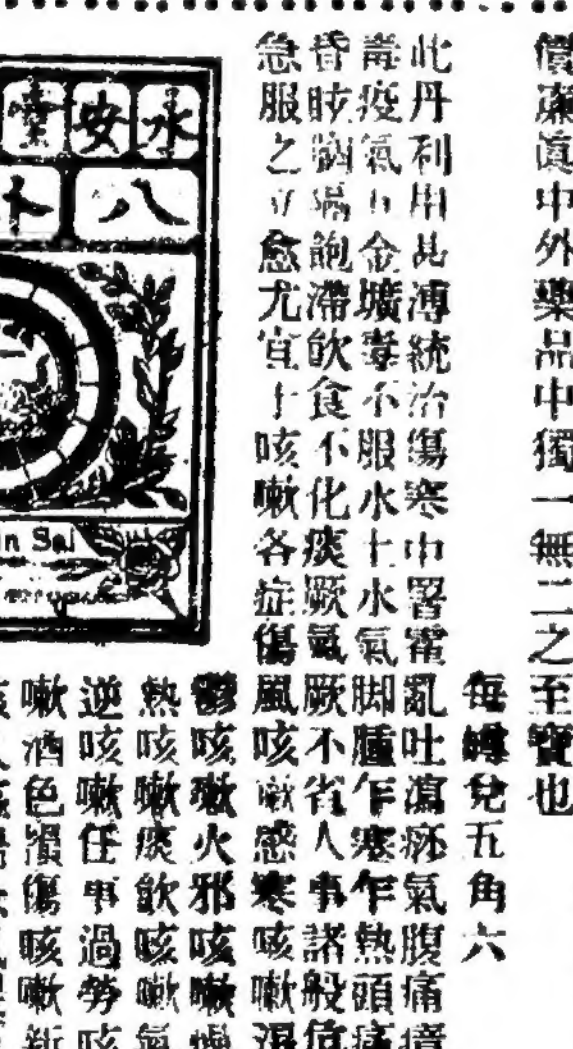 價廉眞中外藥品中獨一無二之至寶也
每罇兌五角六
此丹利用甚溥統治傷寒中暑霍亂吐瀉痧氣腹痛瘴
毒疫氣五金壙毒不服水土水氣脚腫乍寒乍熱頭痛
昏眩胸膈飽滯飲食不化痰厥氣厥不省人事諸般危
急服之立愈尤宜于咳嗽各症傷風咳嗽感寒咳嗽濕
鬱咳嗽火邪咳嗽燥
熱咳嗽痰飲咳嗽氣
逆咳嗽任事過勞咳
嗽酒色損傷咳嗽新
永安堂
八卦
in Sai